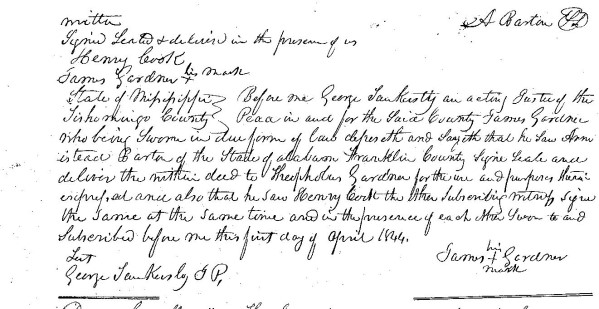 written A Barton
Signed Sealed & delivered in the presence of us
Henry Cook
James Gardner his mark
State of Mississippi } Before me George Tankersly an acting Justice of the
Tishomingo County } Peace in and for the Said County James Gardner
who being Sworn in due form of law deposeth and Sayeth that he Saw Arm
istead Barton of the State of alabama Franklin County Signe Seale and
deliver the within deed to Theopholus Gardner for the use and purposes therein
expressed and also that he saw Henry Cook the other Subscribing witness Signe
the Same at the same time and in the presence of each other Sworn to and
Subscribed before me this first day of April 1844.
Test James his + mark Gardner
George Tankersley J P,